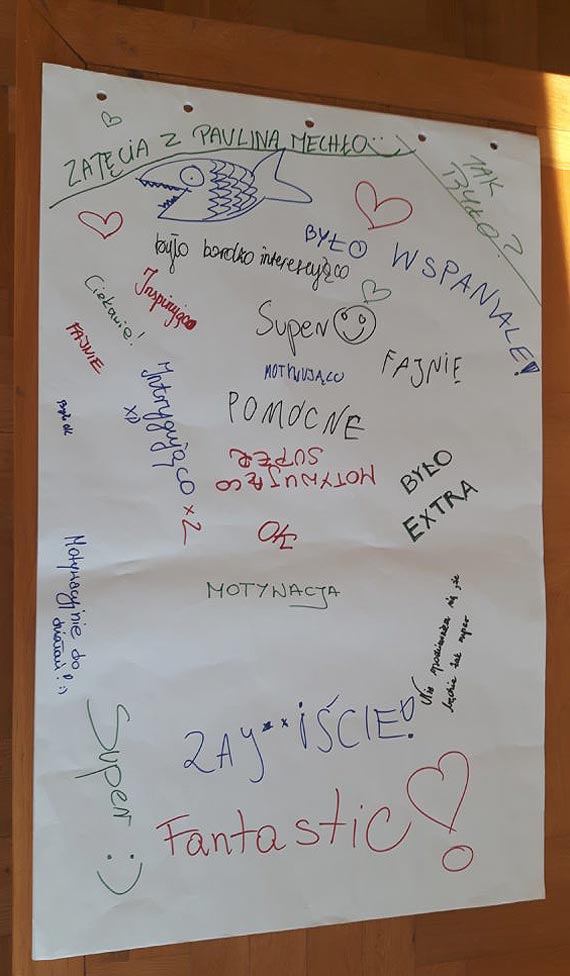 ZAJĘCIA Z PAULINĄ MECHŁO
JAK
BYŁO?
BYŁO WSPANIALE!
było bardzo interesująco
Inspirująco
Ciekawie!
Super
FAJNIE
FAJNIE
MOTYWUJĄCO
Intrygująco x2
XD
POMOCNE
Było ok
SUPER
MOTYWUJĄCO
BYŁO
EXTRA
MOTYWACJA
Motywacyjnie do
działań! :)
Nie spodziewałam się, że
będzie tak super
ZAJ**IŚCIE!
Super :)
Fantastic